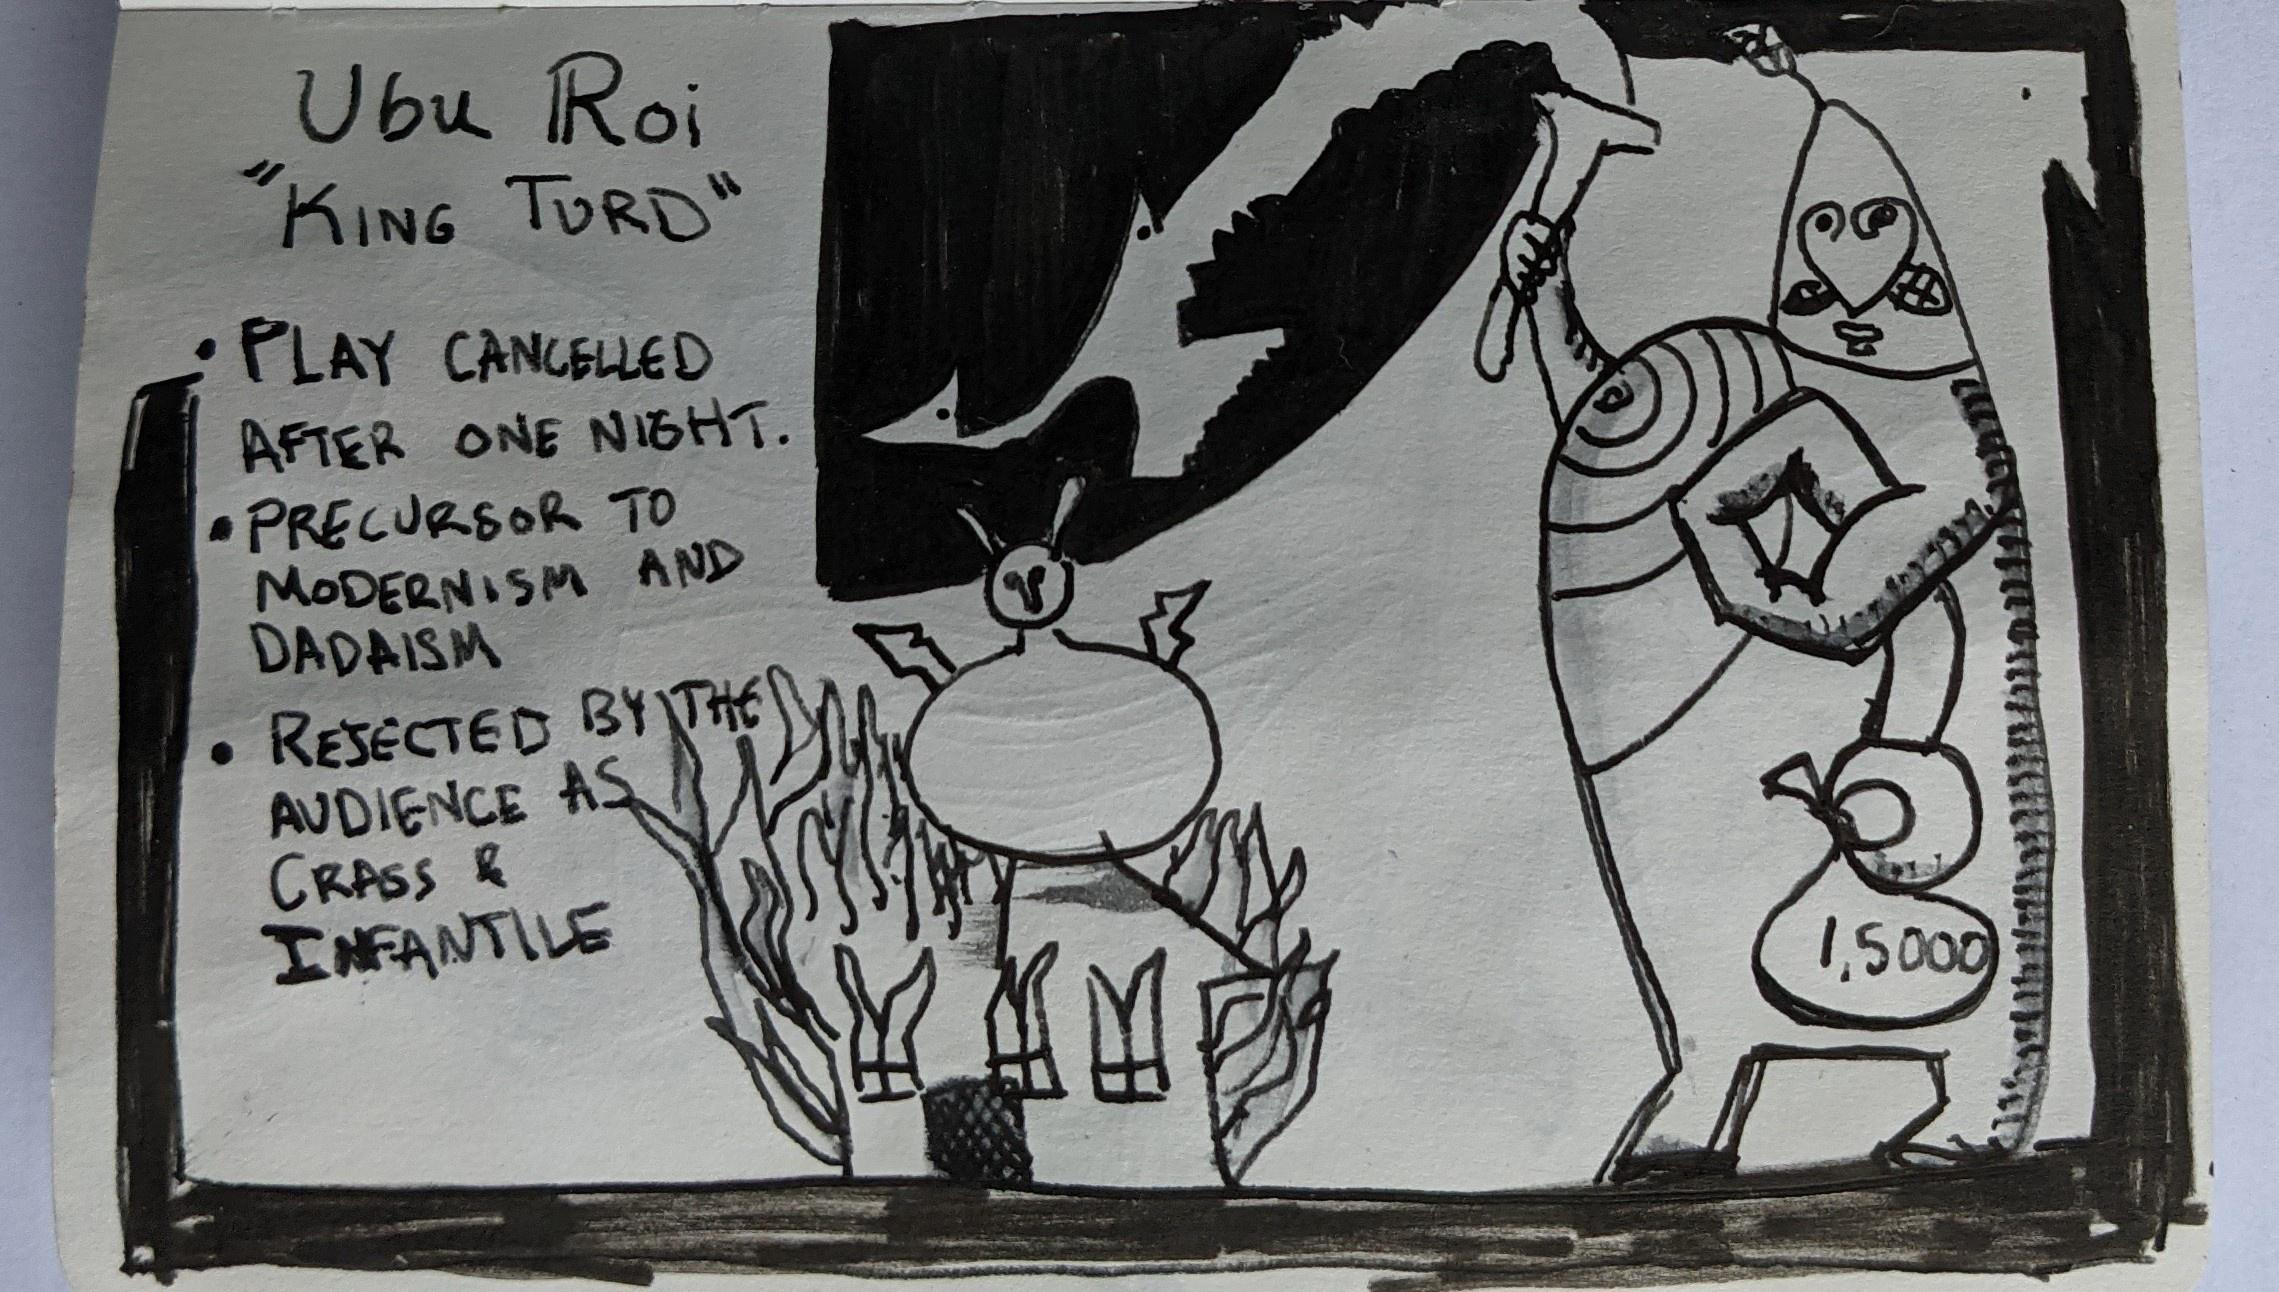 Ubu Roi
"KING TURD"
• PLAY CANCELLED
AFTER ONE NIGHT.
• PRECURSOR TO
MODERNISM AND
DADAISM
• REJECTED BY THE
AUDIENCE AS
CRASS &
INFANTILE
1,5000